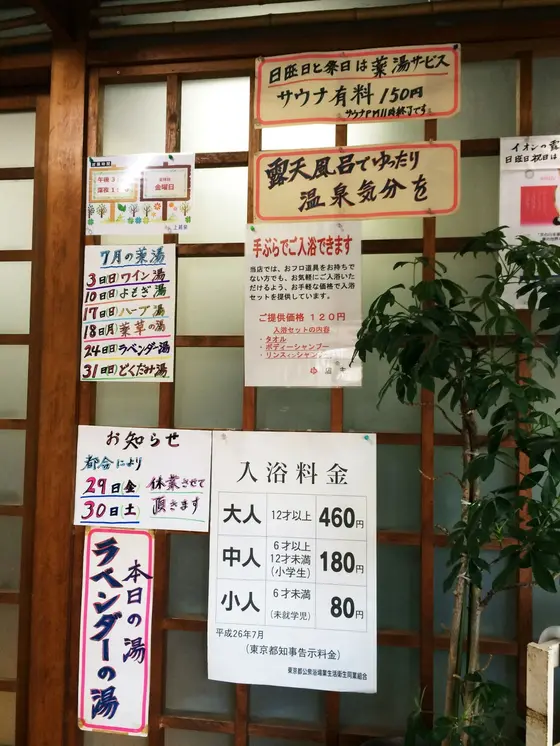 日曜日と祭日は薬湯サービス
サウナ有料150円
サウナPM11時終了です
露天風呂でゆったり
温泉気分を
営業時間
午後3
深夜1
定休日
金曜日
7月の薬湯
3日(日)ワイン湯
10日(日)よもぎ湯
17日(日)ハーブ湯
18日(月)薬草の湯
24日(日)ラベンダー湯
31日(日)どくだみ湯
手ぶらでご入浴できます
当店では、おフロ道具をお持ちで
ない方でも、お気軽にご入浴いた
だけるよう、お手軽な価格で入浴
セットを提供しています。
ご提供価格 120円
入浴セットの内容
・タオル
・ボディーシャンプー
・リンスインシャン
店主
イオンの
日曜日祝日は
お知らせ
都合により
29日(金)
30日(土)
休業させて
頂きます
入浴料金
大人 12才以上 460円
中人 6才以上
12才未満
(小学生) 180円
小人 6才未満
(未就学児) 80円
平成26年7月
(東京都知事告示料金)
東京都公衆浴場業生活衛生同業組合
本日の湯
ラベンダーの湯